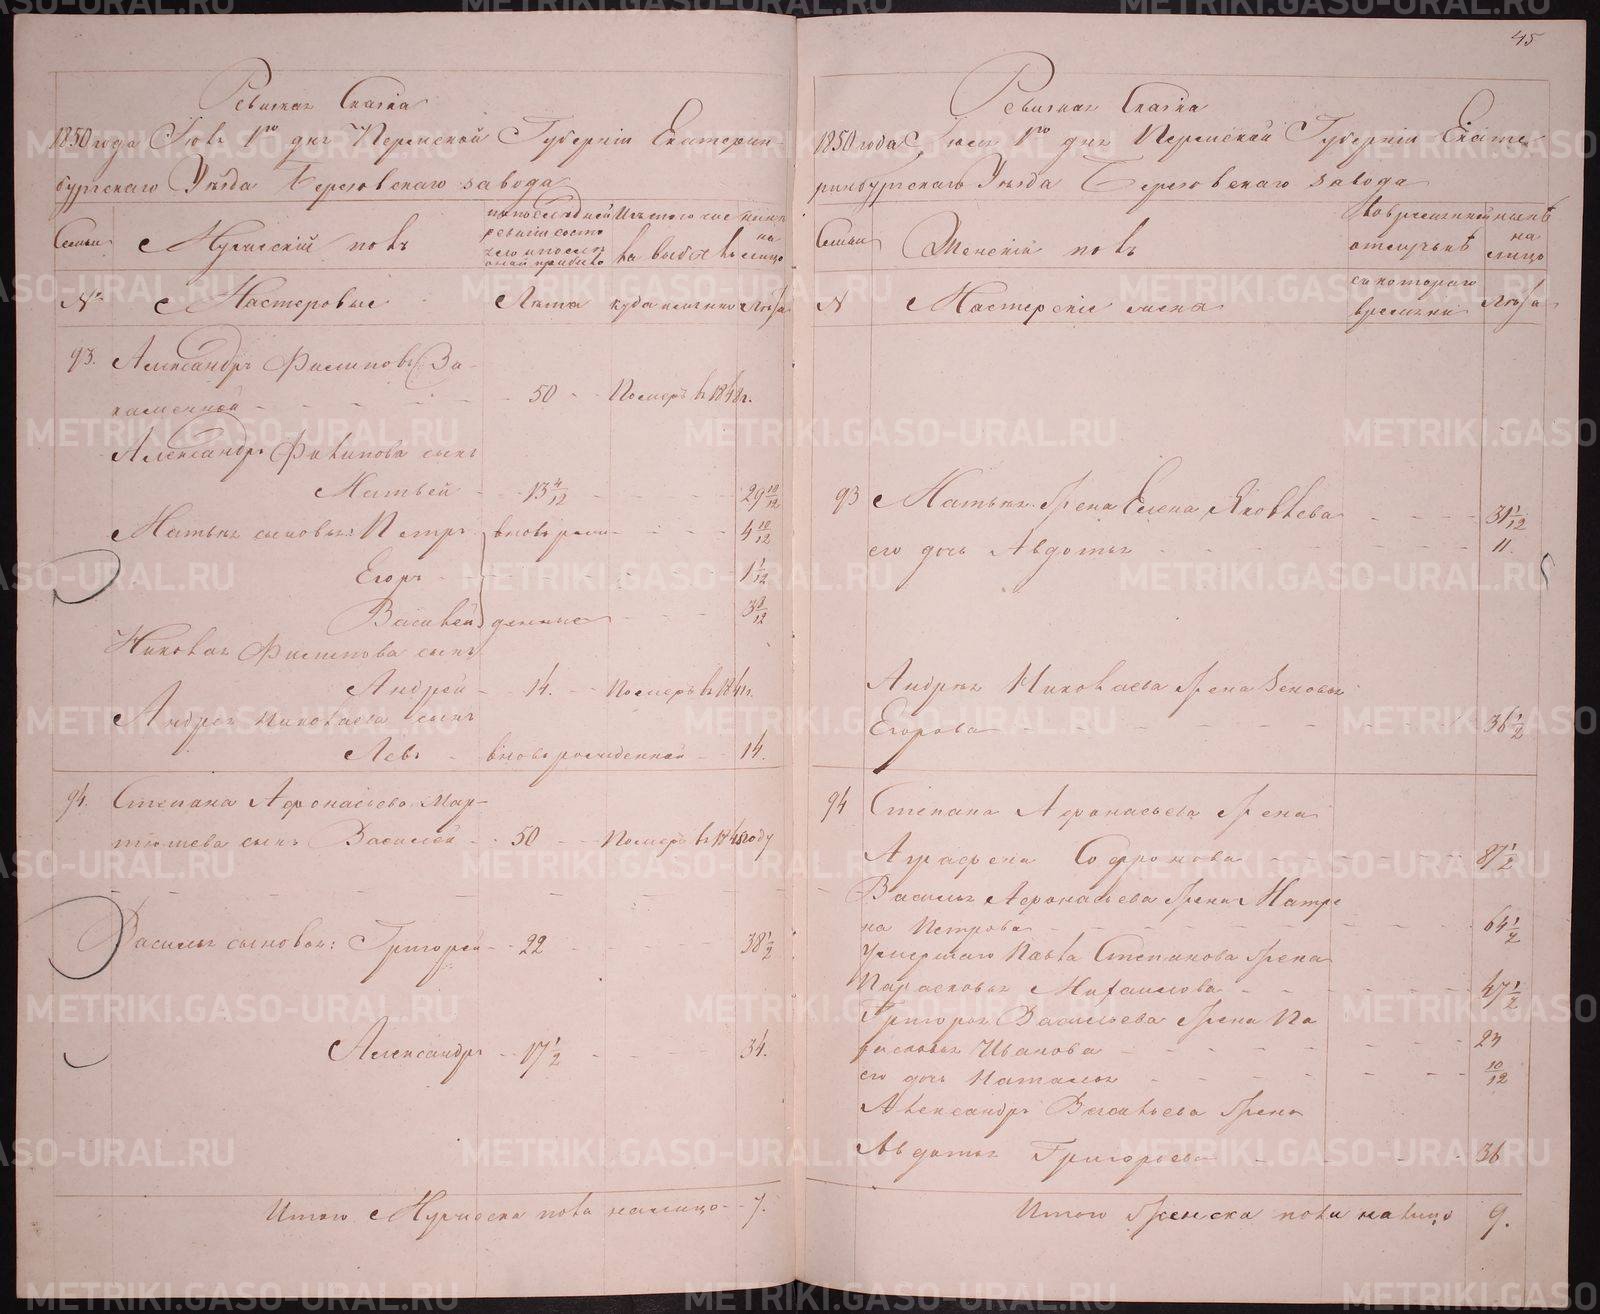 Ревизская Сказка
1850 года Іюля 1го дня Пермской Губерніи Екатерин-
бургскаго Уѣзда Березовскаго завода
Семьи
Мужескій полъ
по последней
ревизіи состо
Изъ того чис
ла выбыло
нынѣ
на
лицо
№
Мастеровые
Лѣта
куда именно
Лѣта
93. Александръ Филиповъ За-
каменной 50 Померъ в 1848 г.
Александра Филипова сынъ
Матвей 13 4/12 29 10/12
Матвея сыновья: Петръ вновь рож 4 10/12
Егоръ 1 1/12
Василей денные 3/12
Николая Филипова сынъ
Андрей 14. Померъ в 1841 г.
Андрея Николаева сынъ
Левъ вновь рожденной 14.
94. Степана Афонасьева Мар-
тюшева сынъ Василей 50 Померъ в 1848 году
Василья сыновья: Григорей 22 38 1/2
Александръ 17 1/2 34.
Итого Мужеска пола налицо 7.
45
Ревизская Сказка
1850 года Іюля 1го дня Пермской Губерніи Екате
ринбургскаго Уѣзда Березовскаго завода
Семьи
Женскій полъ
Во временной
отлучкѣ
нынѣ
на
лицо
N
Мастерскіе жена
съ котораго
времени
Лѣта
93 Матвея Жена Елена Яковлева 31 1/12
его дочь Авдотья 11.
Андрея Николаева Жена Зеновья
Егорова 36 1/2
94 Степана Афонасьева Жена
Аграфена Софронова 87 1/2
Василья Афонасьева Жена Матре
на Петрова 64 1/2
Умершаго Павла Степанова Жена
Парасковья Михаилова 47 1/2
Григорья Васильева Жена Па
расковья Иванова 23
его дочь Наталья 10/12
Александра Васильева Жена
Авдотья Григорьева 36
Итого Женска пола налицо 9.
METRIKI.GASO-URAL.RU